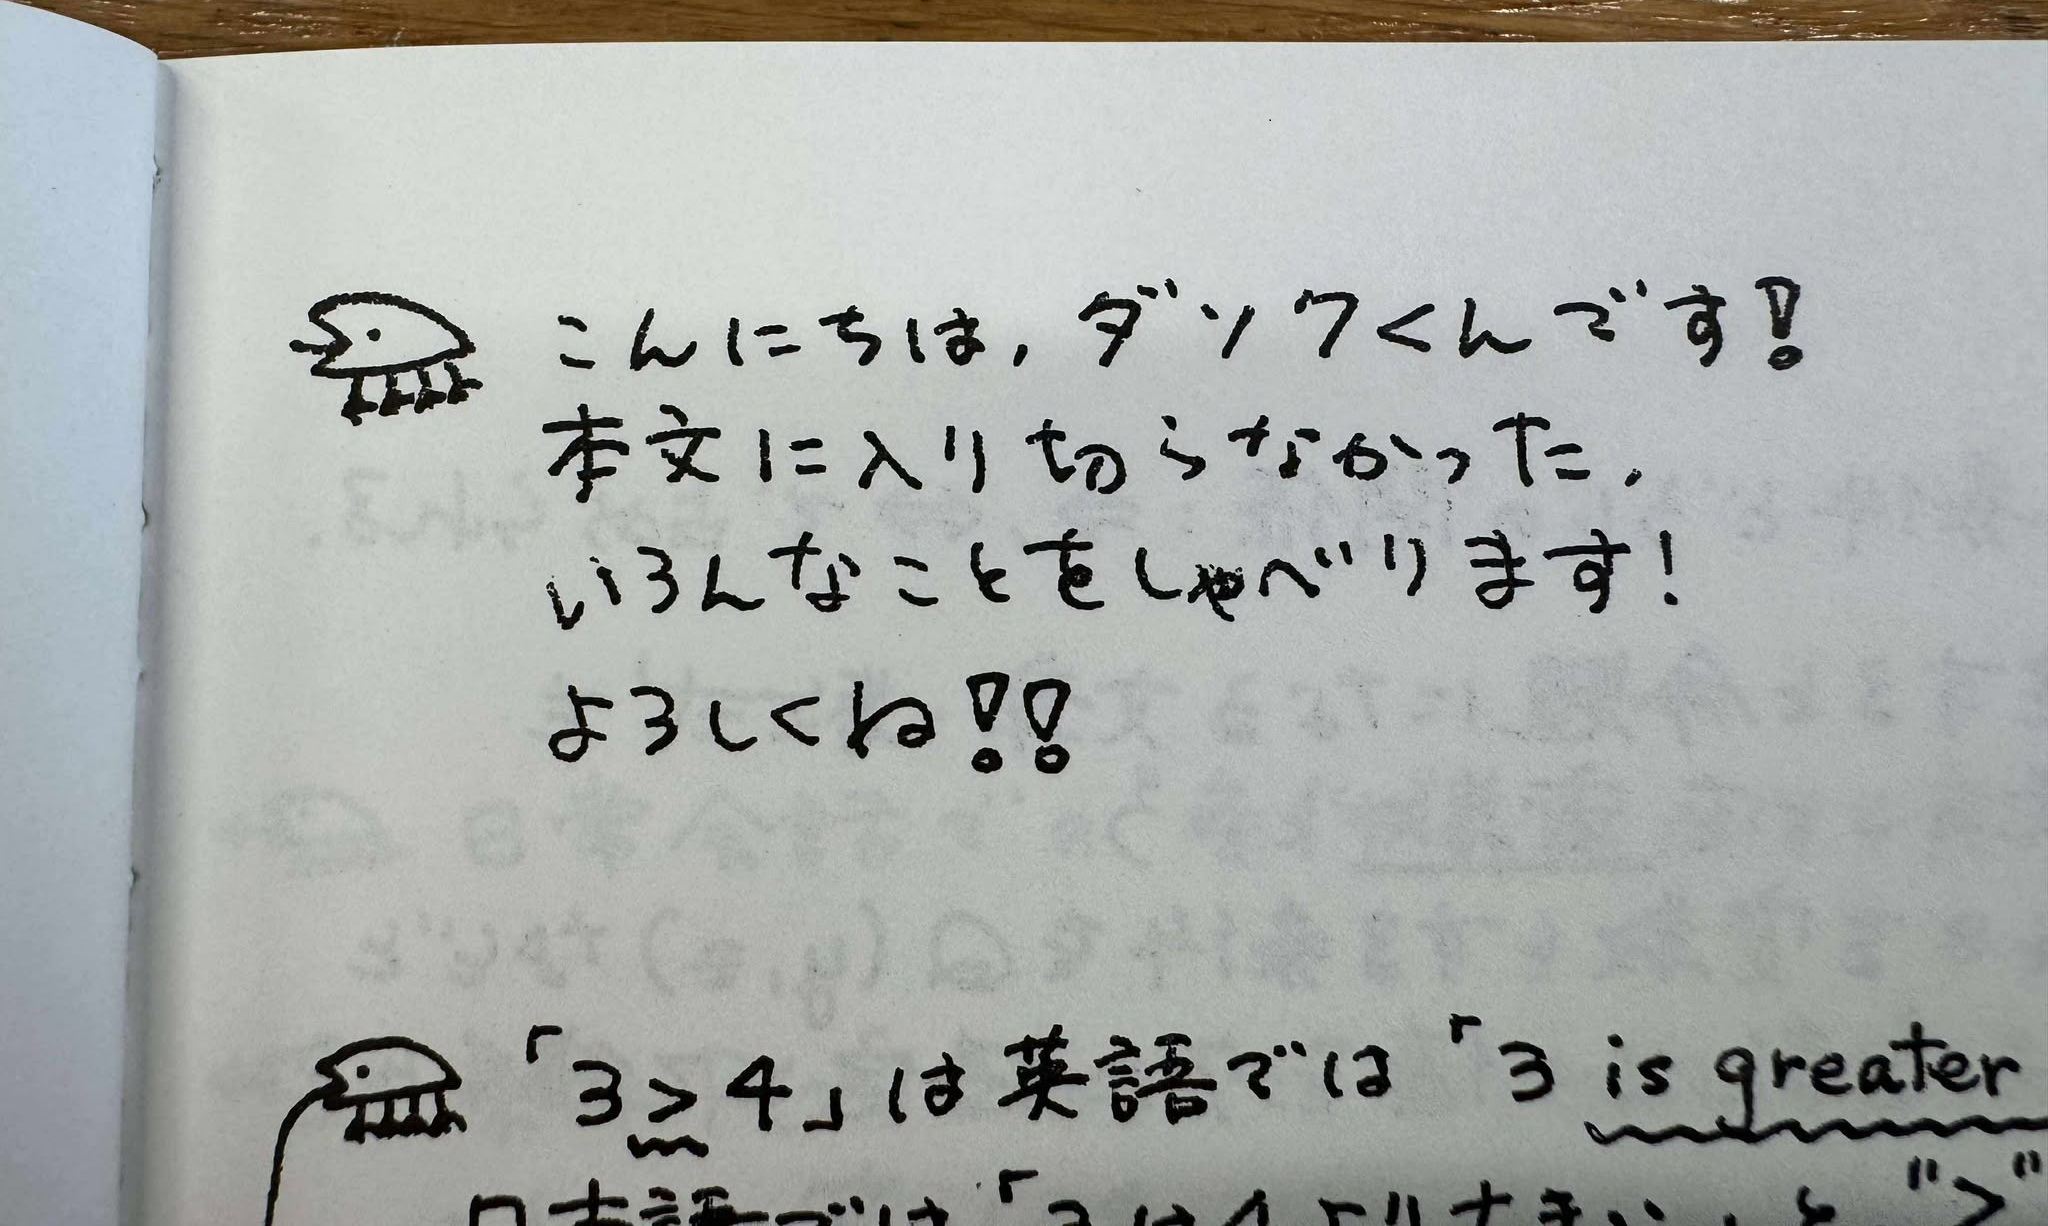 こんにちは，ダソクくんです！
本文に入り切らなかった，
いろんなことをしゃべります！
よろしくね！！
「3＞4」は英語では「3 is greater
日本語では「3は4より大きい」と">"